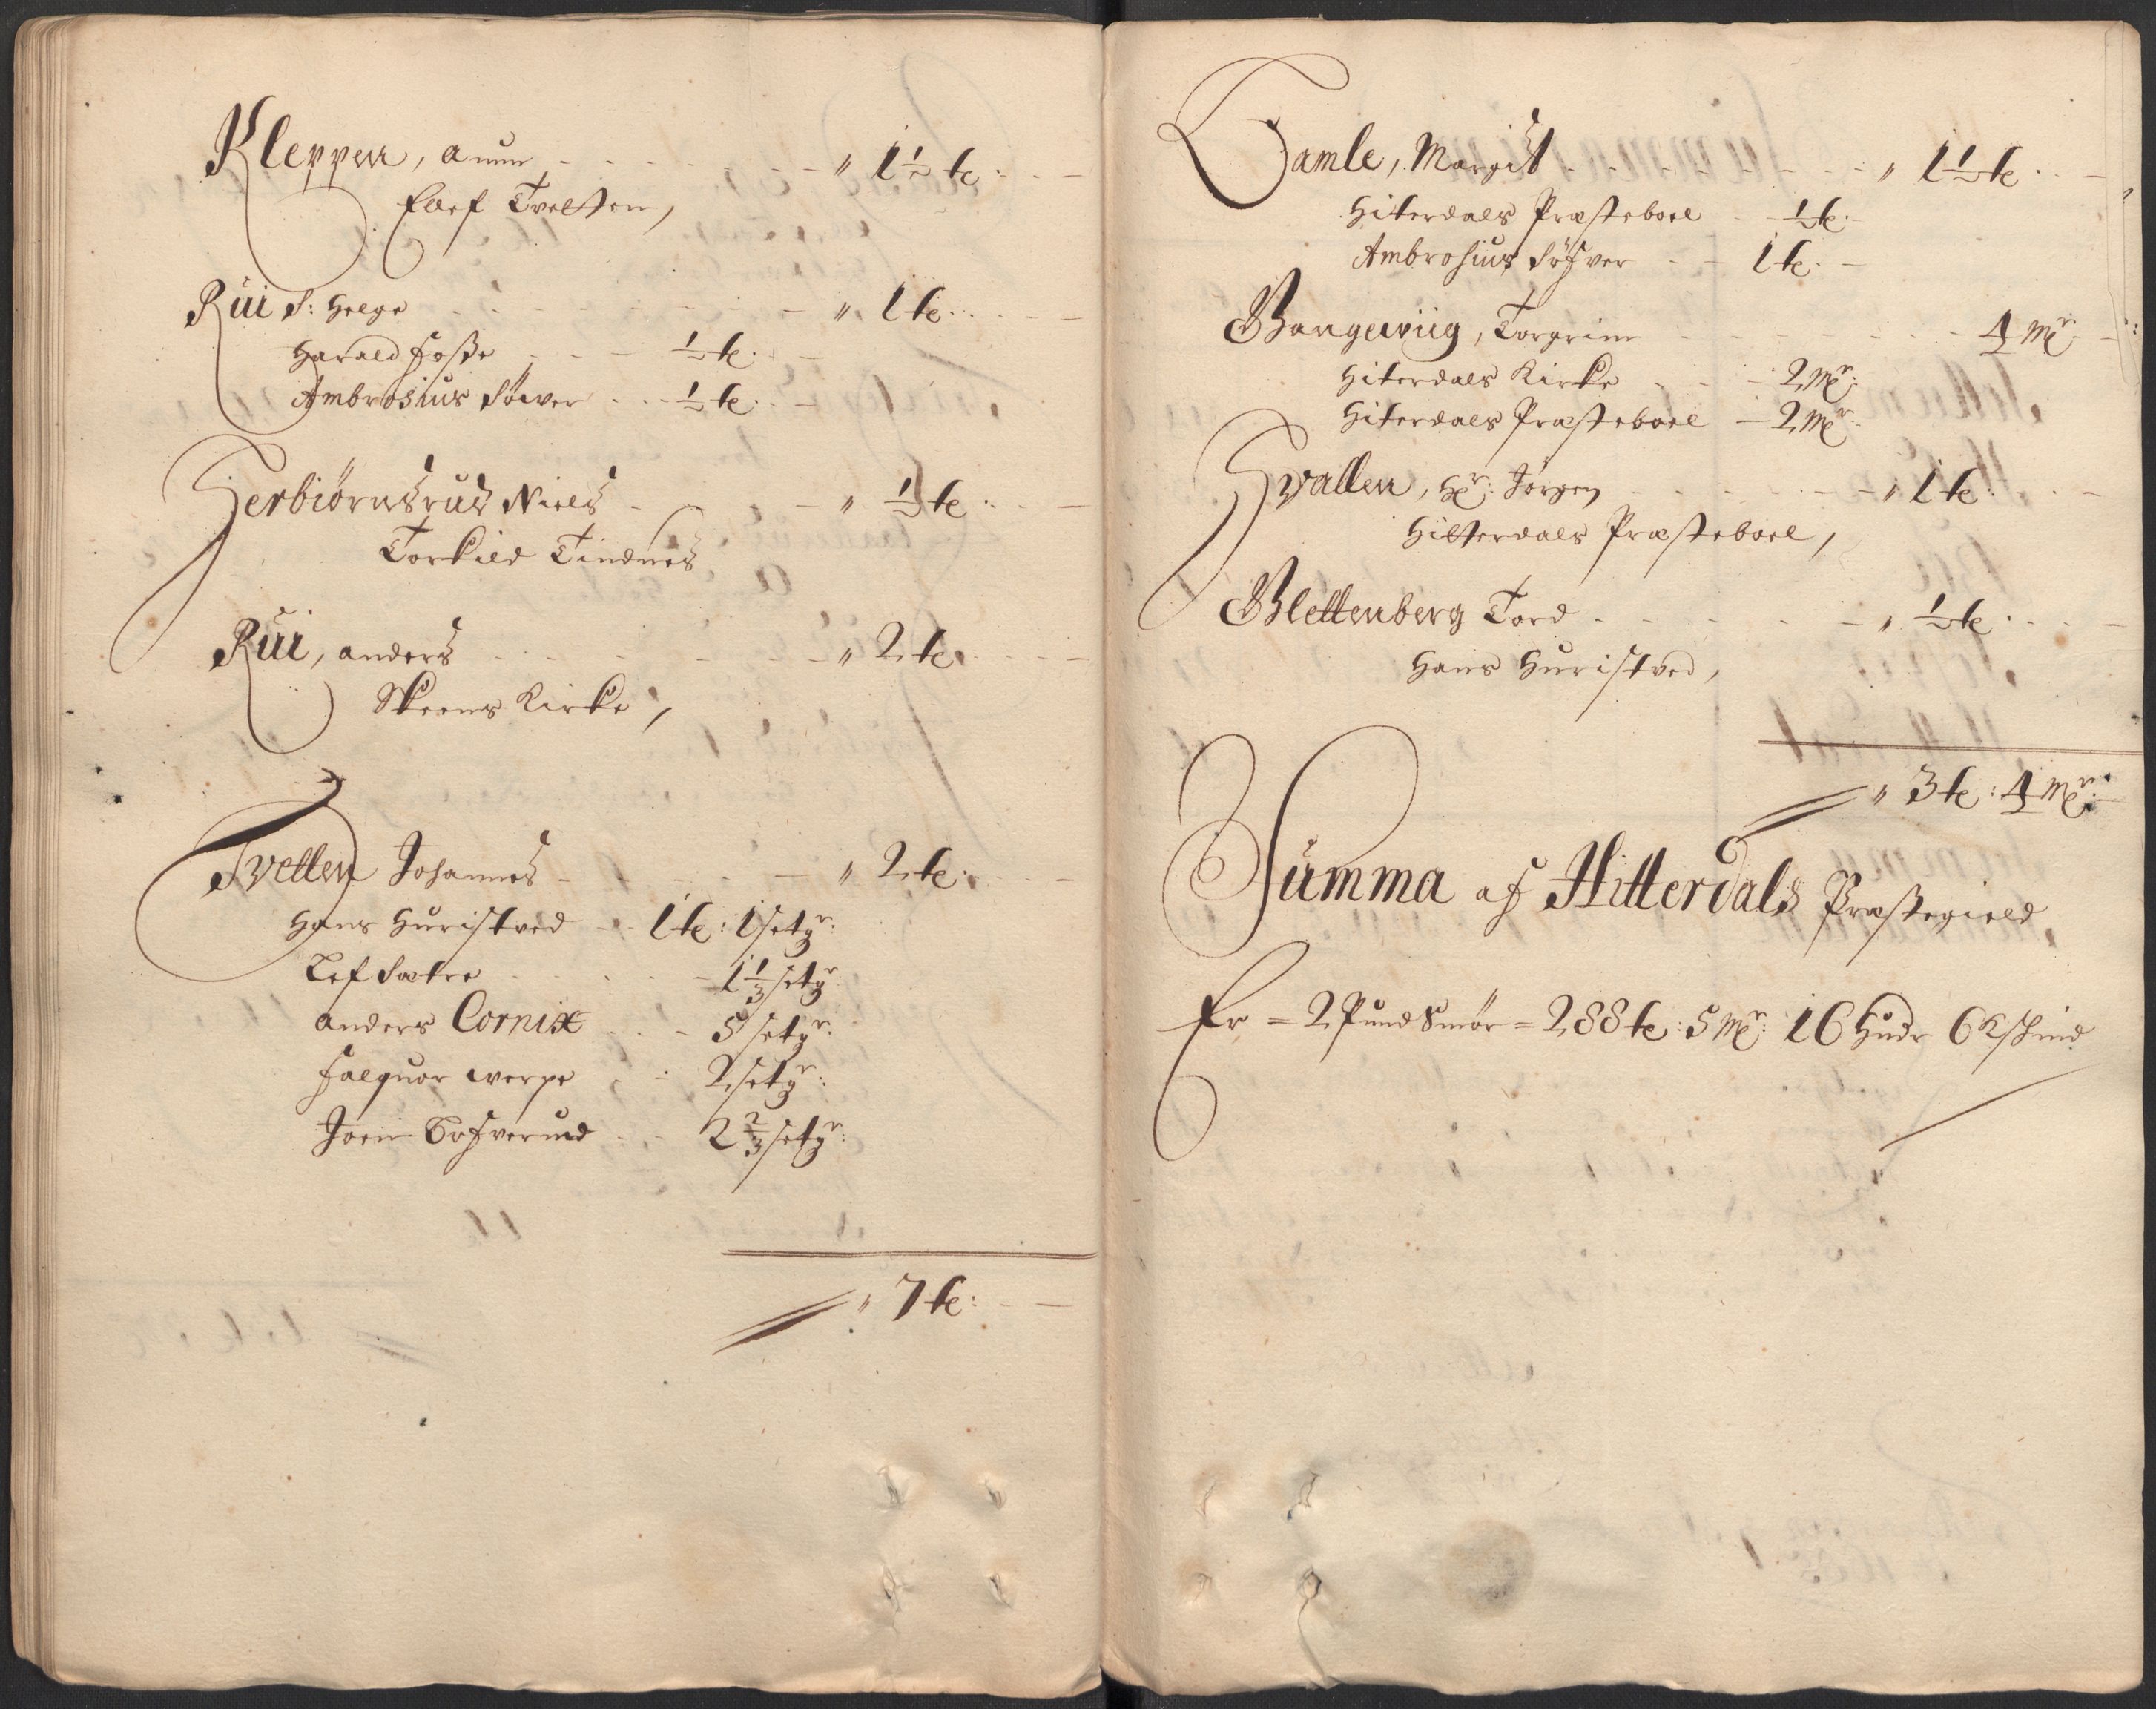 Kleppen, Anun - - - " 1½ te:
Elef Tvetten,
Rui S: Helge - - - " 1 te:
Harald Foße - - ½ te:
Ambrosius Søwer - - ½ te:
Herbiörnsrud Niels - - " ½ te:
Torkild Tindnes
Rui, anders - - - " 2 te.
Skeens Kirke,
Tvetten Johannes - - - " 2 te:
Hans Huristved - - 1 te: 1 setgr:
Lef Sætre - - 1⅓ setgr
anders Cornix - - 5 setgr:
falquor werpe - 2 setgr:
Joen - - 2⅔ setgr:
" 7 te:
Damle, Margit - - - " 1½ te:
Hiterdals Præsteboel - ½ te:
Ambrosius Søfver - - 1 te:
Bangewiig, Torgrim - - - 4 Mr:
Hiterdals Kirke - - 2 Mr:
Hiterdals Præsteboel - 2 Mr:
Hvallen, Hr: Jørgen - - - " 1 te:
Hitterdals Præsteboel,
Blettenberg Tord - - - " ½ te:
Hans Huristved,
" 3 te: 4 Mr:
Summa af Hitterdals Præstegield
Er = 2 Pund Smör = 288 te: 5 Mr: 16 Hudr 6 Kskind